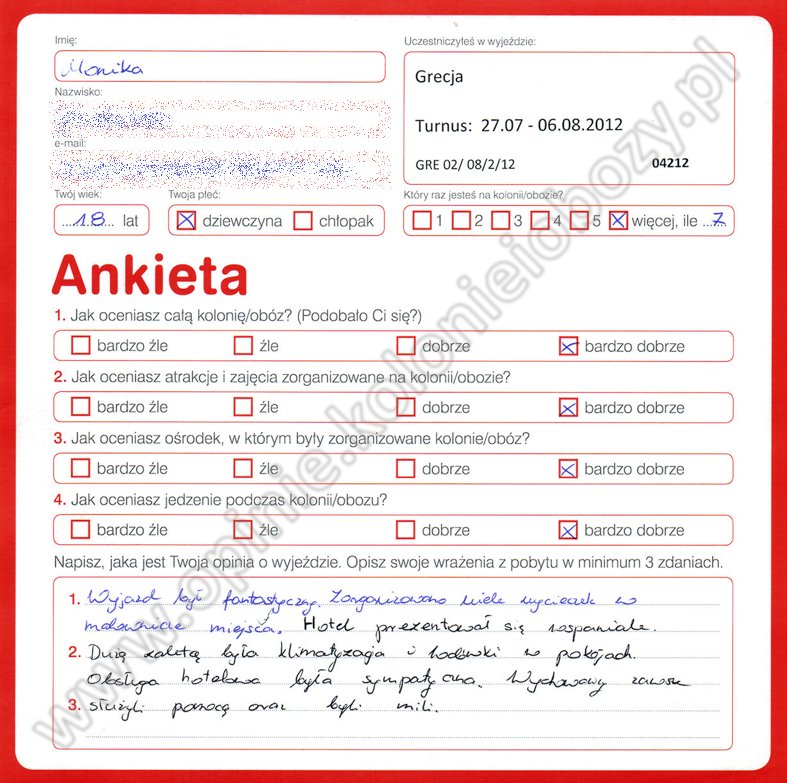 Imię:
Monika
Uczestniczyłeś w wyjeździe:
Grecja
Turnus: 27.07 - 06.08.2012
GRE 02/ 08/2/12 04212
Nazwisko:
e-mail:
Twój wiek:
...18... lat
Twoja płeć:
dziewczyna chłopak
Który raz jesteś na kolonii/obozie?
1 2 3 4 5 więcej, ile ...7
Ankieta
1. Jak oceniasz całą kolonię/obóz? (Podobało Ci się?)
bardzo źle źle dobrze bardzo dobrze
2. Jak oceniasz atrakcje i zajęcia zorganizowane na kolonii/obozie?
bardzo źle źle dobrze bardzo dobrze
3. Jak oceniasz ośrodek, w którym były zorganizowane kolonie/obóz?
bardzo źle źle dobrze bardzo dobrze
4. Jak oceniasz jedzenie podczas kolonii/obozu?
bardzo źle źle dobrze bardzo dobrze
Napisz, jaka jest Twoja opinia o wyjeździe. Opisz swoje wrażenia z pobytu w minimum 3 zdaniach.
1. Wyjazd był fantastyczny. Zorganizowano wiele wycieczek w
malownicze miejsca. Hotel prezentował się wspaniale.
2. Dużą zaletą była klimatyzacja i lodówki w pokojach.
Obsługa hotelowa była sympatyczna. Wychowawcy zawsze
3. służyli pomocą oraz byli mili.
www.opinie.kolonieiobozy.pl